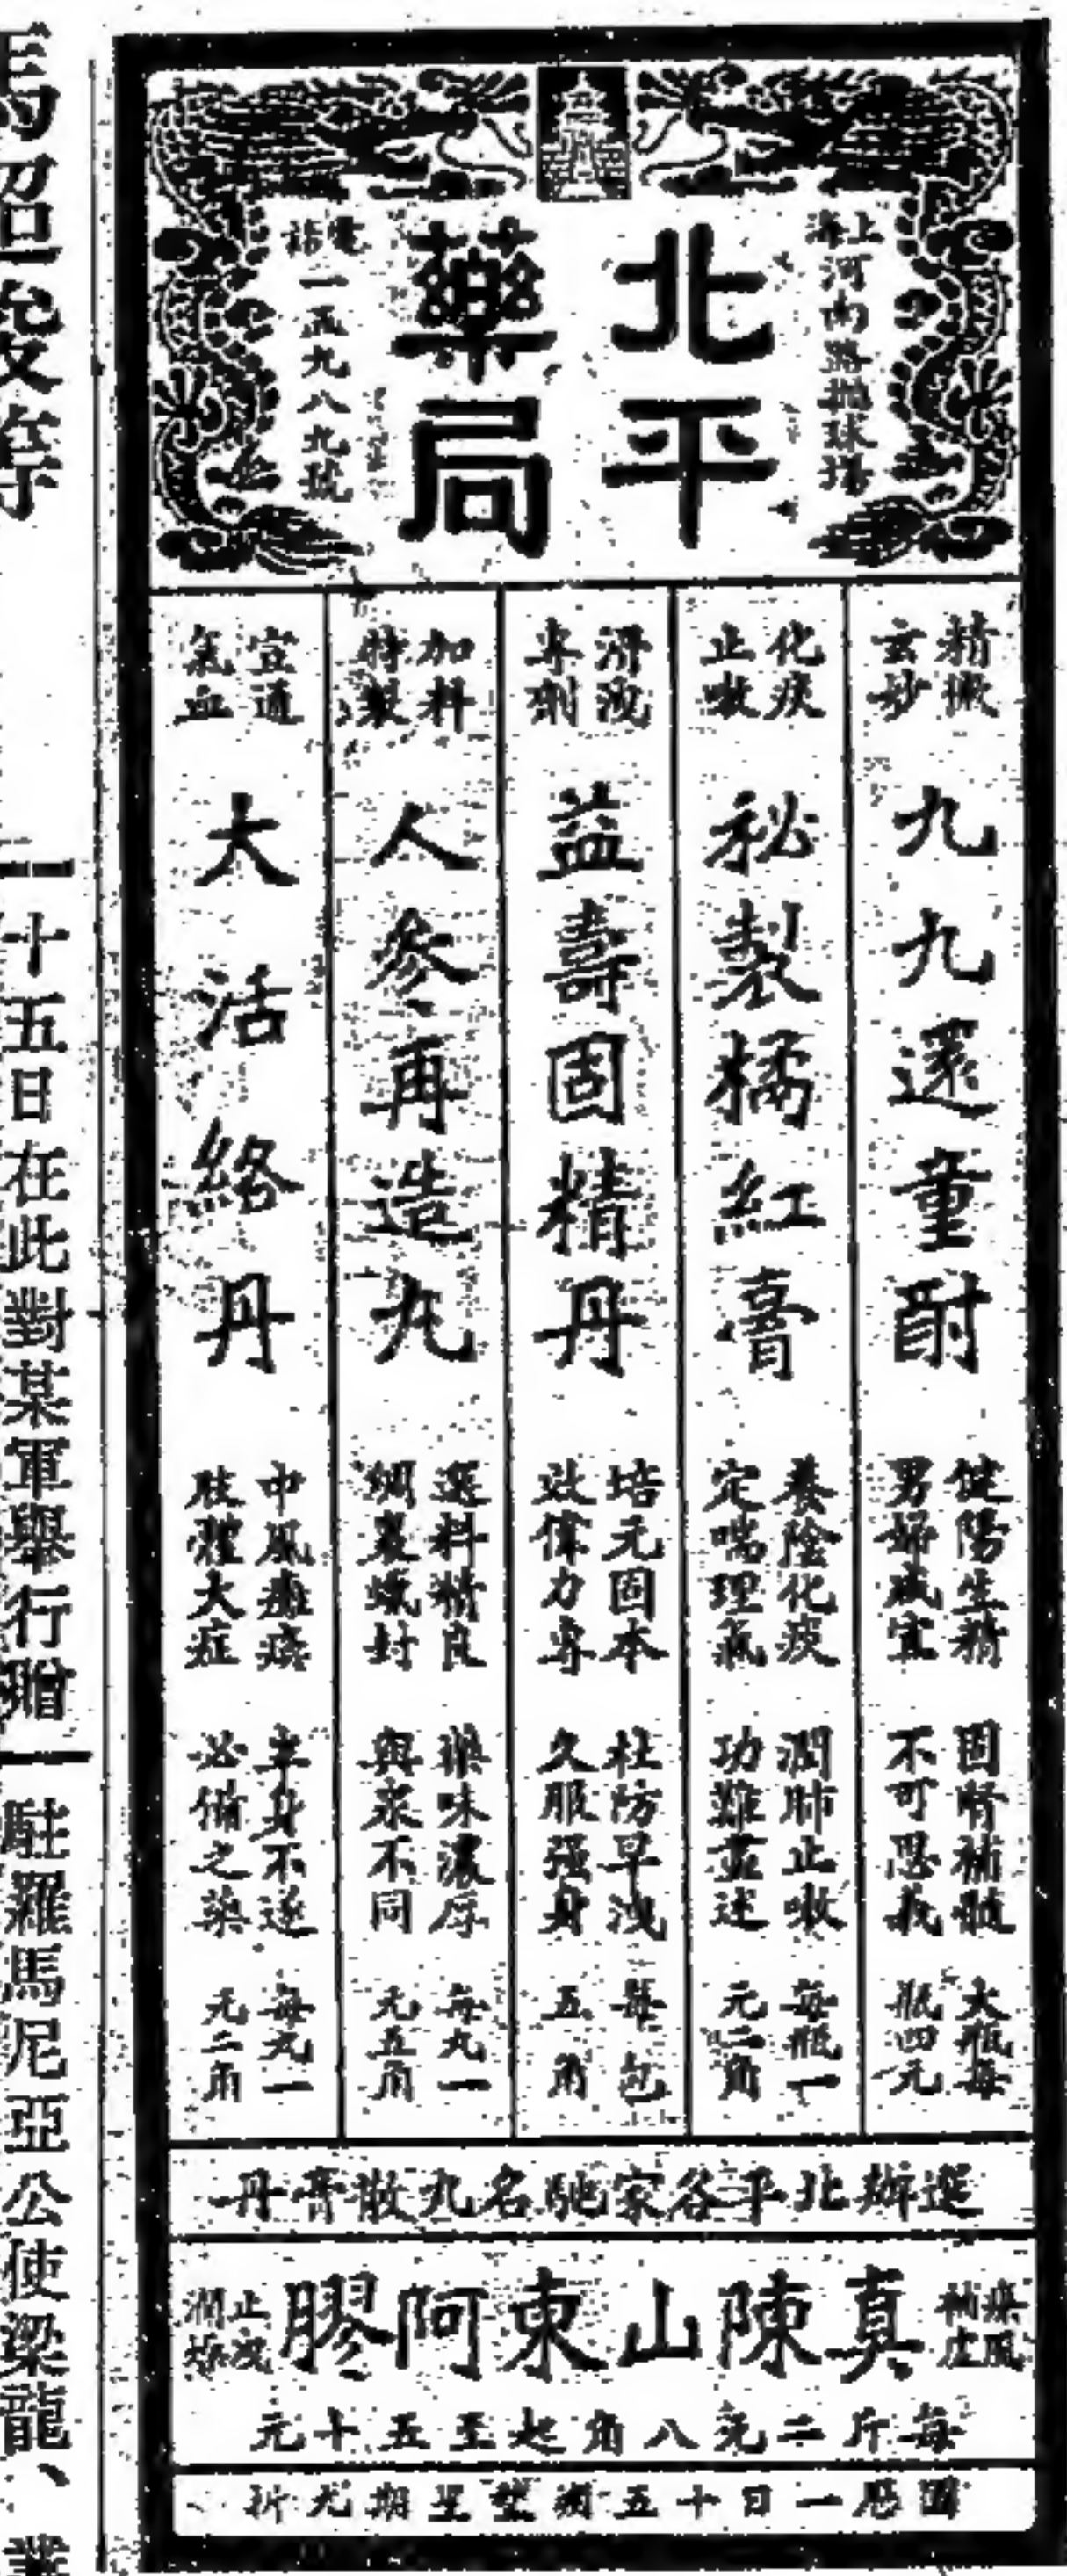 上海河南路拋球場
北平
藥局
電話一五九八九號
精緻
玄妙
九九還童酎
健陽生精
男婦咸宜
固腎補髓
不可思義
大瓶每
瓶四元
化痰
止嗽
秘製橘紅膏
養陰化痰
定喘理氣
潤肺止嗽
功難盡述
每瓶一
元二角
滑洩
專劑
益壽固精丹
培元固本
效偉力專
杜防早洩
久服强身
每包
五角
加料
特製
人參再造丸
選料精良
綢裹蠟封
藥味濃厚
與衆不同
每丸一
元五角
宣通
氣血
大活絡丹
中風癱瘓
肢體大症
半身不遂
必備之藥
每丸一
元二角
選辦北平各家馳名丸散膏丹
真陳山東阿膠
止咳
潤燥
每斤二元八角起至五十元
國曆一日十五類逢星期九折
馬紹俊等
十五日在此對某軍舉行贈
駐羅馬尼亞公使梁龍、